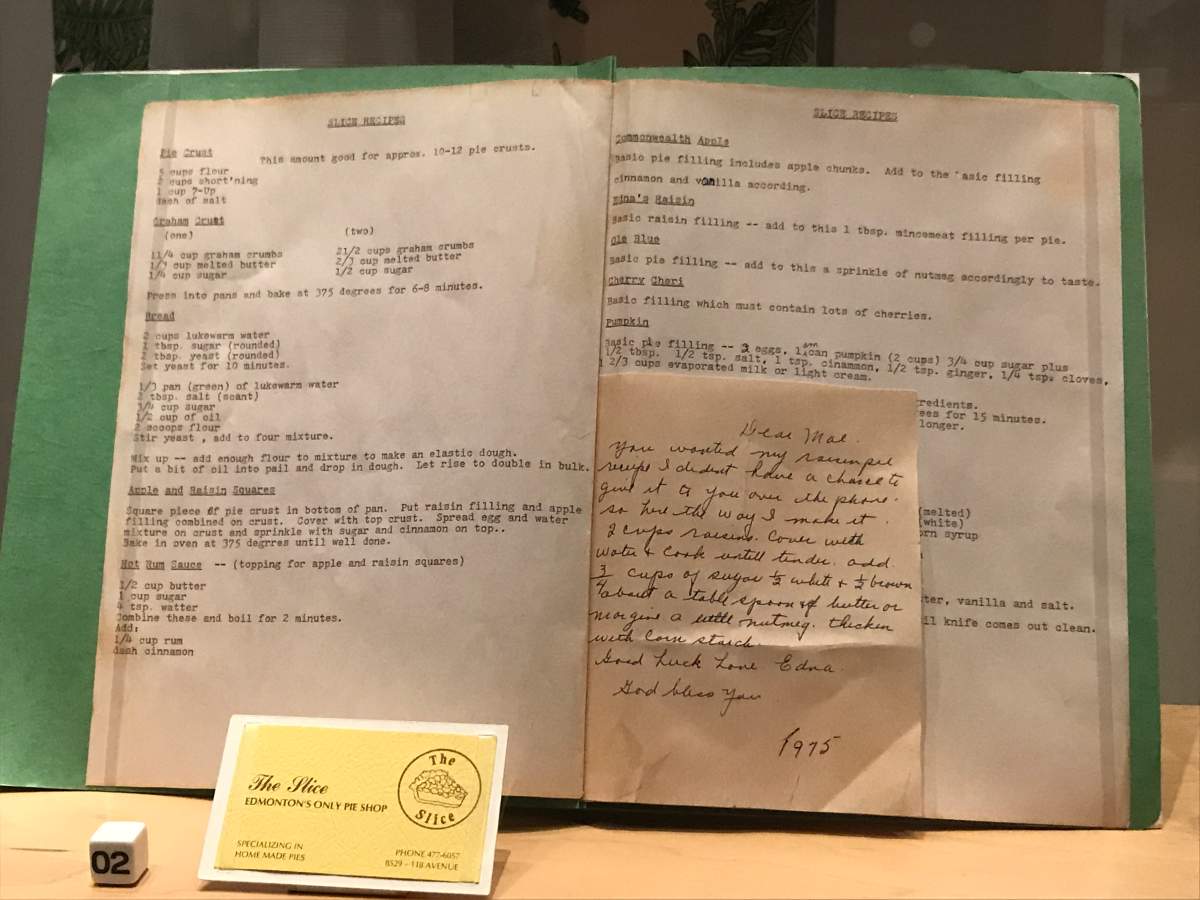 SLICE RECIPES
Pie Crust
This amount good for approx. 10-12 pie crusts.
5 cups flour
2 cups short'ning
1 cup 7-Up
dash of salt
Graham Crust
(one) (two)
1 1/4 cup graham crumbs 2 1/2 cups graham crumbs
1/3 cup melted butter 2/3 cup melted butter
1/4 cup sugar 1/2 cup sugar
Press into pans and bake at 375 degrees for 6-8 minutes.
Bread
2 cups lukewarm water
1 tbsp. sugar (rounded)
2 tbsp. yeast (rounded)
Set yeast for 10 minutes.
1/3 pan (green) of lukewarm water
2 tbsp. salt (scant)
3/4 cup sugar
1/2 cup of oil
2 scoops flour
Stir yeast , add to four mixture.
Mix up -- add enough flour to mixture to make an elastic dough.
Put a bit of oil into pail and drop in dough. Let rise to double in bulk.
Apple and Raisin Squares
Square piece of pie crust in bottom of pan. Put raisin filling and apple
filling combined on crust. Cover with top crust. Spread egg and water
mixture on crust and sprinkle with sugar and cinnamon on top..
Bake in oven at 375 degrres until well done.
Hot Rum Sauce -- (topping for apple and raisin squares)
1/2 cup butter
1 cup sugar
4 tsp. watter
Combine these and boil for 2 minutes.
Add:
1/4 cup rum
dash cinnamon
SLICE RECIPES
Commonwealth Apple
Basic pie filling includes apple chunks. Add to the basic filling
cinnamon and vanilla according.
Raisin
Basic raisin filling -- add to this 1 tbsp. mincemeat filling per pie.
Ole Blue
Basic pie filling -- add to this a sprinkle of nutmeg accordingly to taste.
Cherry Cheri
Basic filling which must contain lots of cherries.
Pumpkin
Basic pie filling -- 2 eggs, 1 sm can pumpkin (2 cups) 3/4 cup sugar plus
1/2 tbsp. 1/2 tsp. salt, 1 tsp. cinammon, 1/2 tsp. ginger, 1/4 tsp. cloves,
1 2/3 cups evaporated milk or light cream.
redients.
ees for 15 minutes.
longer.
(melted)
(white)
orn syrup
ter, vanilla and salt.
il knife comes out clean.
Dear Mae.
You wanted my raisin pie
recipe I dident have a chance to
give it to you over the phone.
so here the way I make it.
2 cups raisins. Cover with
water & cook untill tender. add
3/4 cups of sugar 1/2 white & 1/2 brown
about a table spoon of butter or
margine a little nutmeg. thicken
with corn starch.
Good Luck Love Edna.
God bless you
1975
The Slice
EDMONTON'S ONLY PIE SHOP
The
Slice
SPECIALIZING IN
HOME MADE PIES
PHONE 477-6057
8529 - 118 AVENUE
02